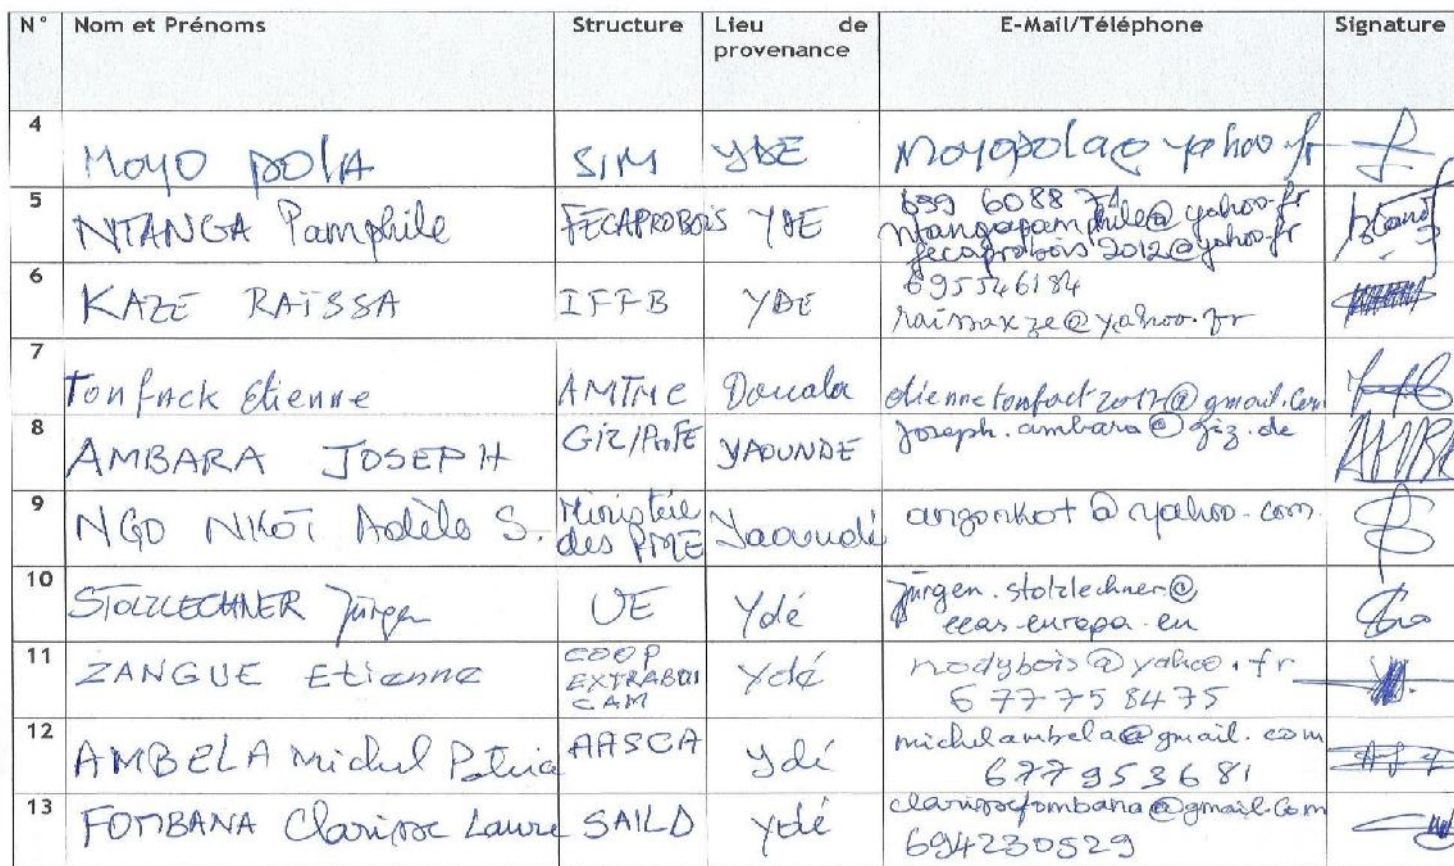 N° Nom et Prénoms Structure Lieu de provenance E-Mail/Téléphone Signature
4 MOYO POLA SIM YDE moyopola@yahoo.fr
5 NTANGA Pamphile FECAPROBOIS YDE 699 6088 71
ntangapamphile@yahoo.fr
fecaprobois2012@yahoo.fr
6 KAZE RAÏSSA IFFB YDE 695546184
raissaxze@yahoo.fr
7 Tonfack Etienne AMTME Douala etiennetonfact2017@gmail.Com
8 AMBARA JOSEPH GIZ/ProFE YAOUNDE joseph.ambara@giz.de
9 NGO NKOT Adèle S. Ministère des PME Yaoundé angonkot@yahoo.com
10 STOLZLECHNER Jürgen UE Ydé Jürgen.stolzlechner@
eeas.europa.eu
11 ZANGUE Etienne COOP
EXTRABOI
CAM Ydé nodybois@yahoo.fr
677758475
12 AMBELA Michel Patrice AASCA Ydé michelambela@gmail.com
677953681
13 FOMBANA Clarisse Laure SAILD Ydé clarissefombana@gmail.Com
694230529